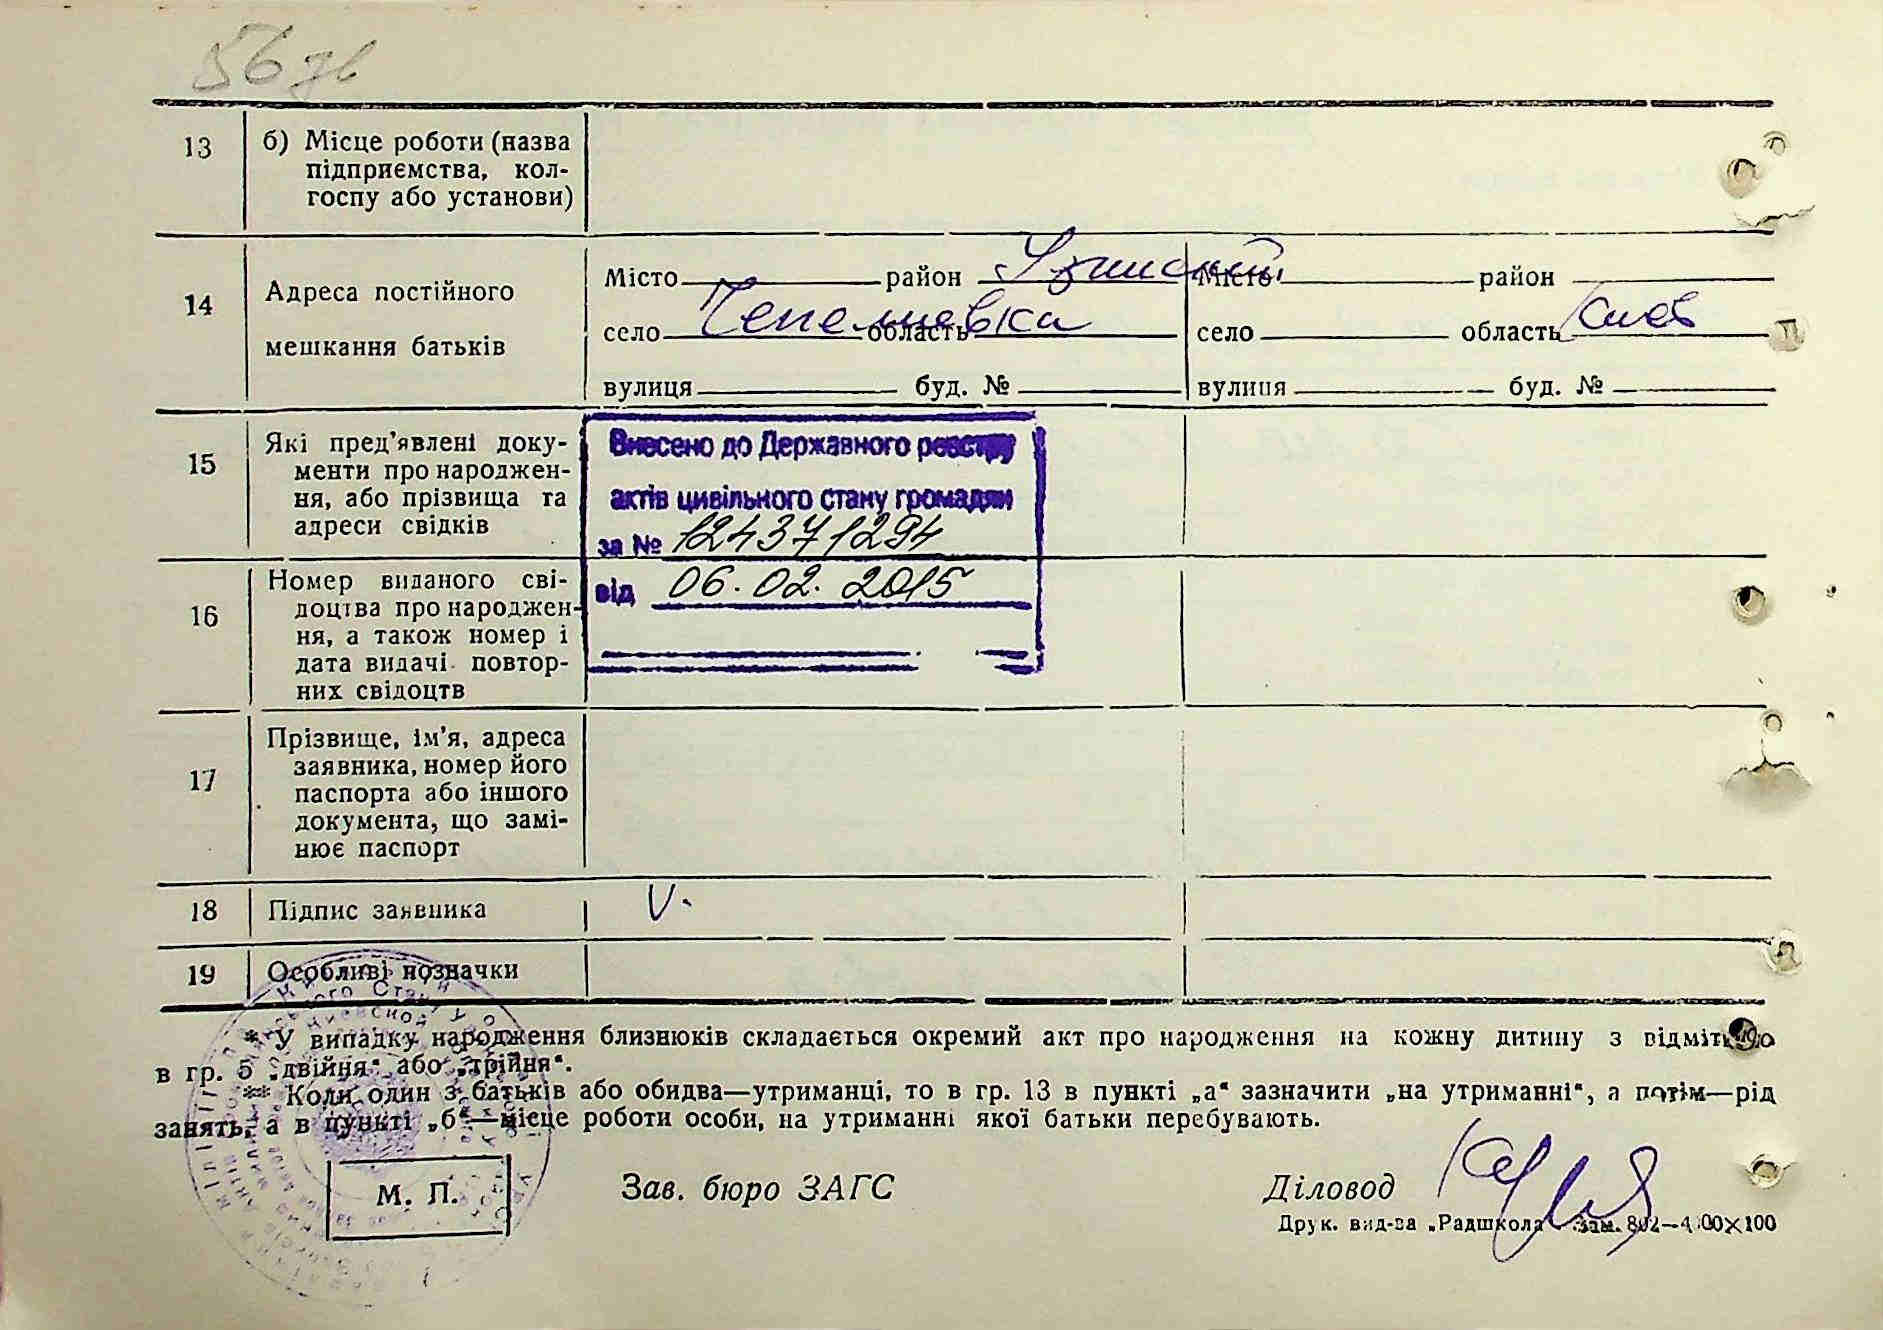 56 зв
13
б) Місце роботи (назва
підприємства, кол-
госпу або установи)
14
Адреса постійного
мешкання батьків
Місто район Узинский Місто район
село Чепелиевка область село область Киев
вулиця буд. № вулиця буд. №
15
Які пред'явлені доку-
менти про народжен-
ня, або прізвища та
адреси свідків
Внесено до Державного реєстру
актів цивільного стану громадян
за № 124371294
від 06.02.2015
16
Номер виданого сві-
доцтва про народжен-
ня, а також номер і
дата видачі повтор-
них свідоцтв
17
Прізвище, ім'я, адреса
заявника, номер його
паспорта або іншого
документа, що замі-
нює паспорт
18
Підпис заявника
V.
19
Особливі позначки
* У випадку народження близнюків складається окремий акт про народження на кожну дитину з відміткою
в гр. 5 „двійня“ або „трійня“.
** Коли один з батьків або обидва—утриманці, то в гр. 13 в пункті „а“ зазначити „на утриманні“, а потім—рід
занять, а в пункті „б“—місце роботи особи, на утриманні якої батьки перебувають.
М. П.
Зав. бюро ЗАГС
Діловод
Друк. вид-ва „Радшкола“ Зам. 802—4000×100